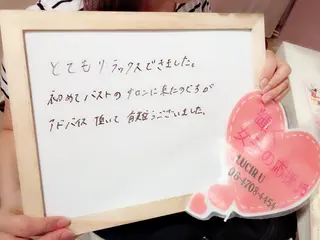 とてもリラックスできました。
初めてバストのサロンに来たのですが
アドバイス頂いて有難うございました。
女性の応援
LUCIR U